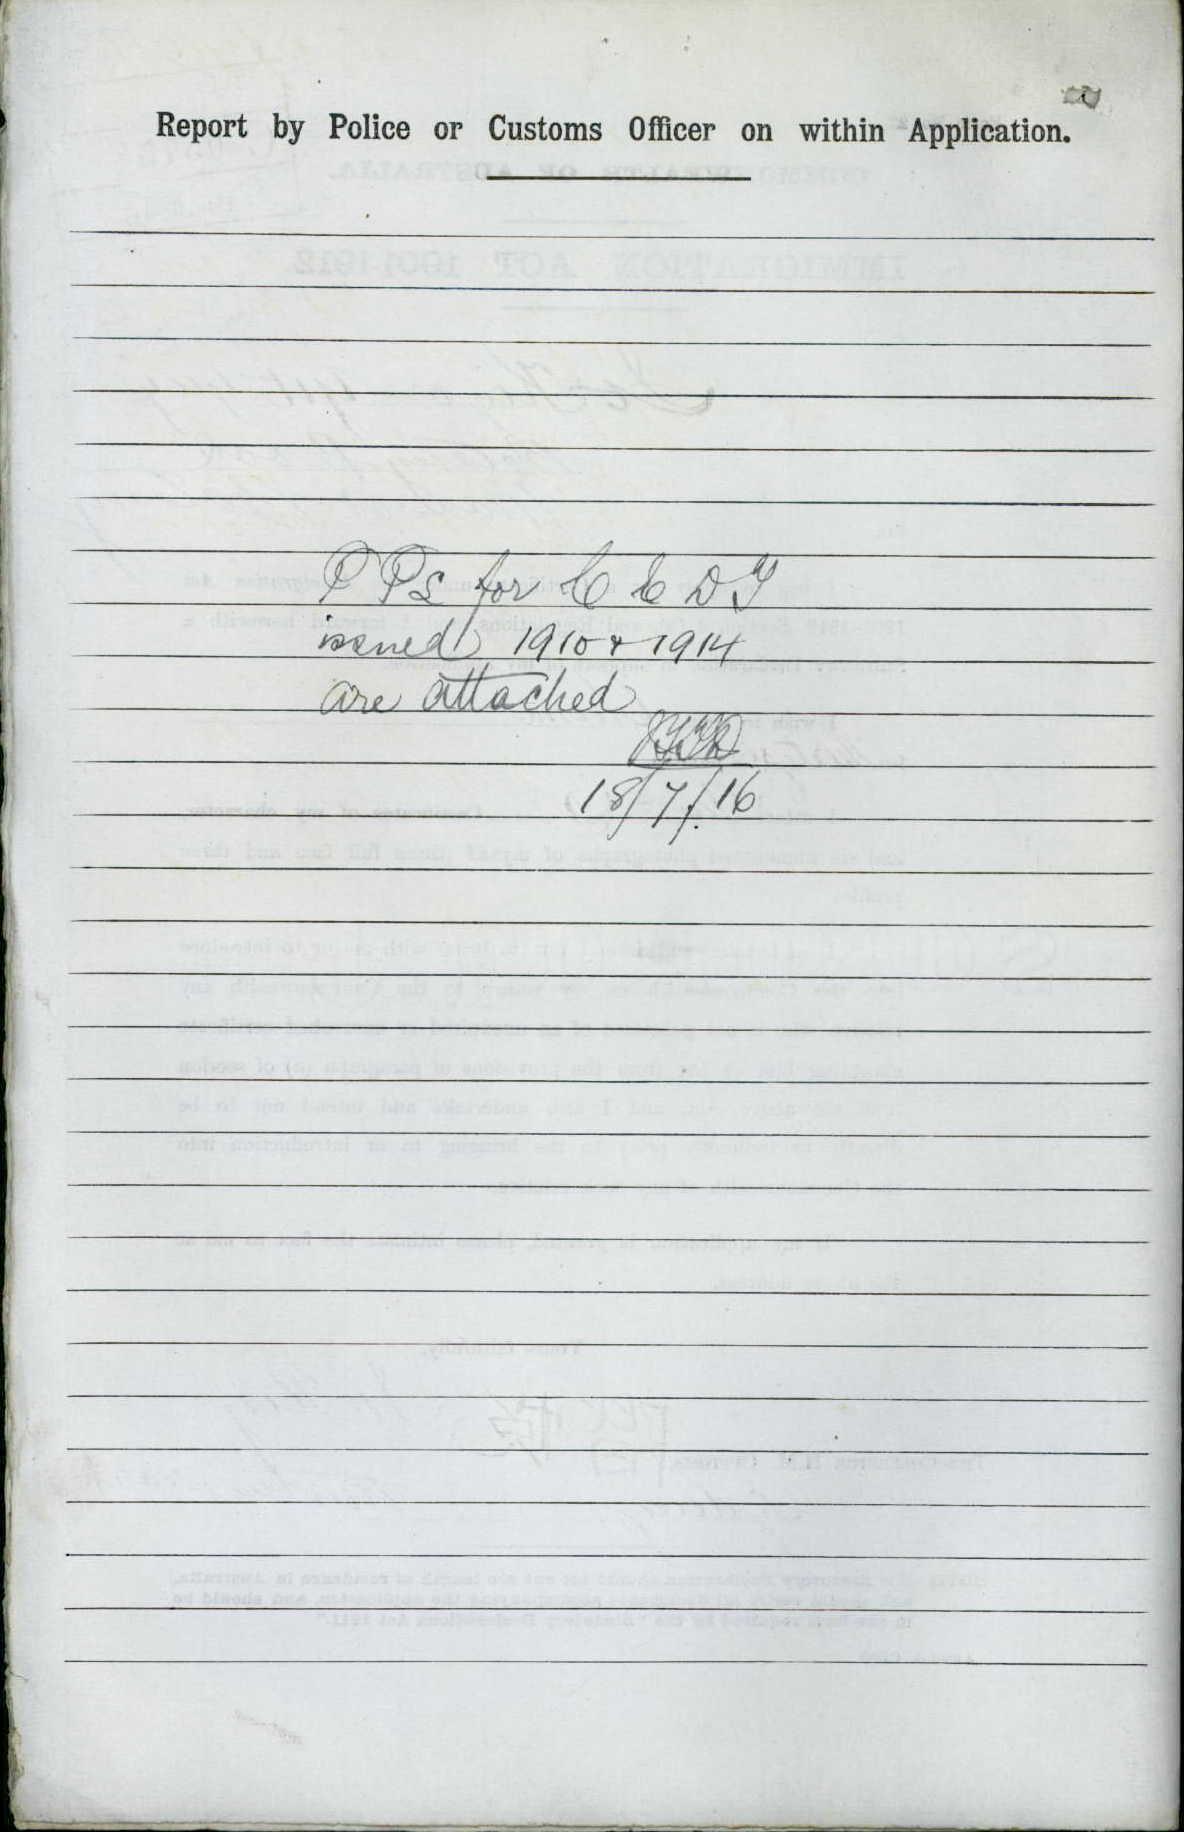 Report by Police or Customs Officer on within Application.
P Ps for C E D T
issued 1910 & 1914
are attached
18/7/.16